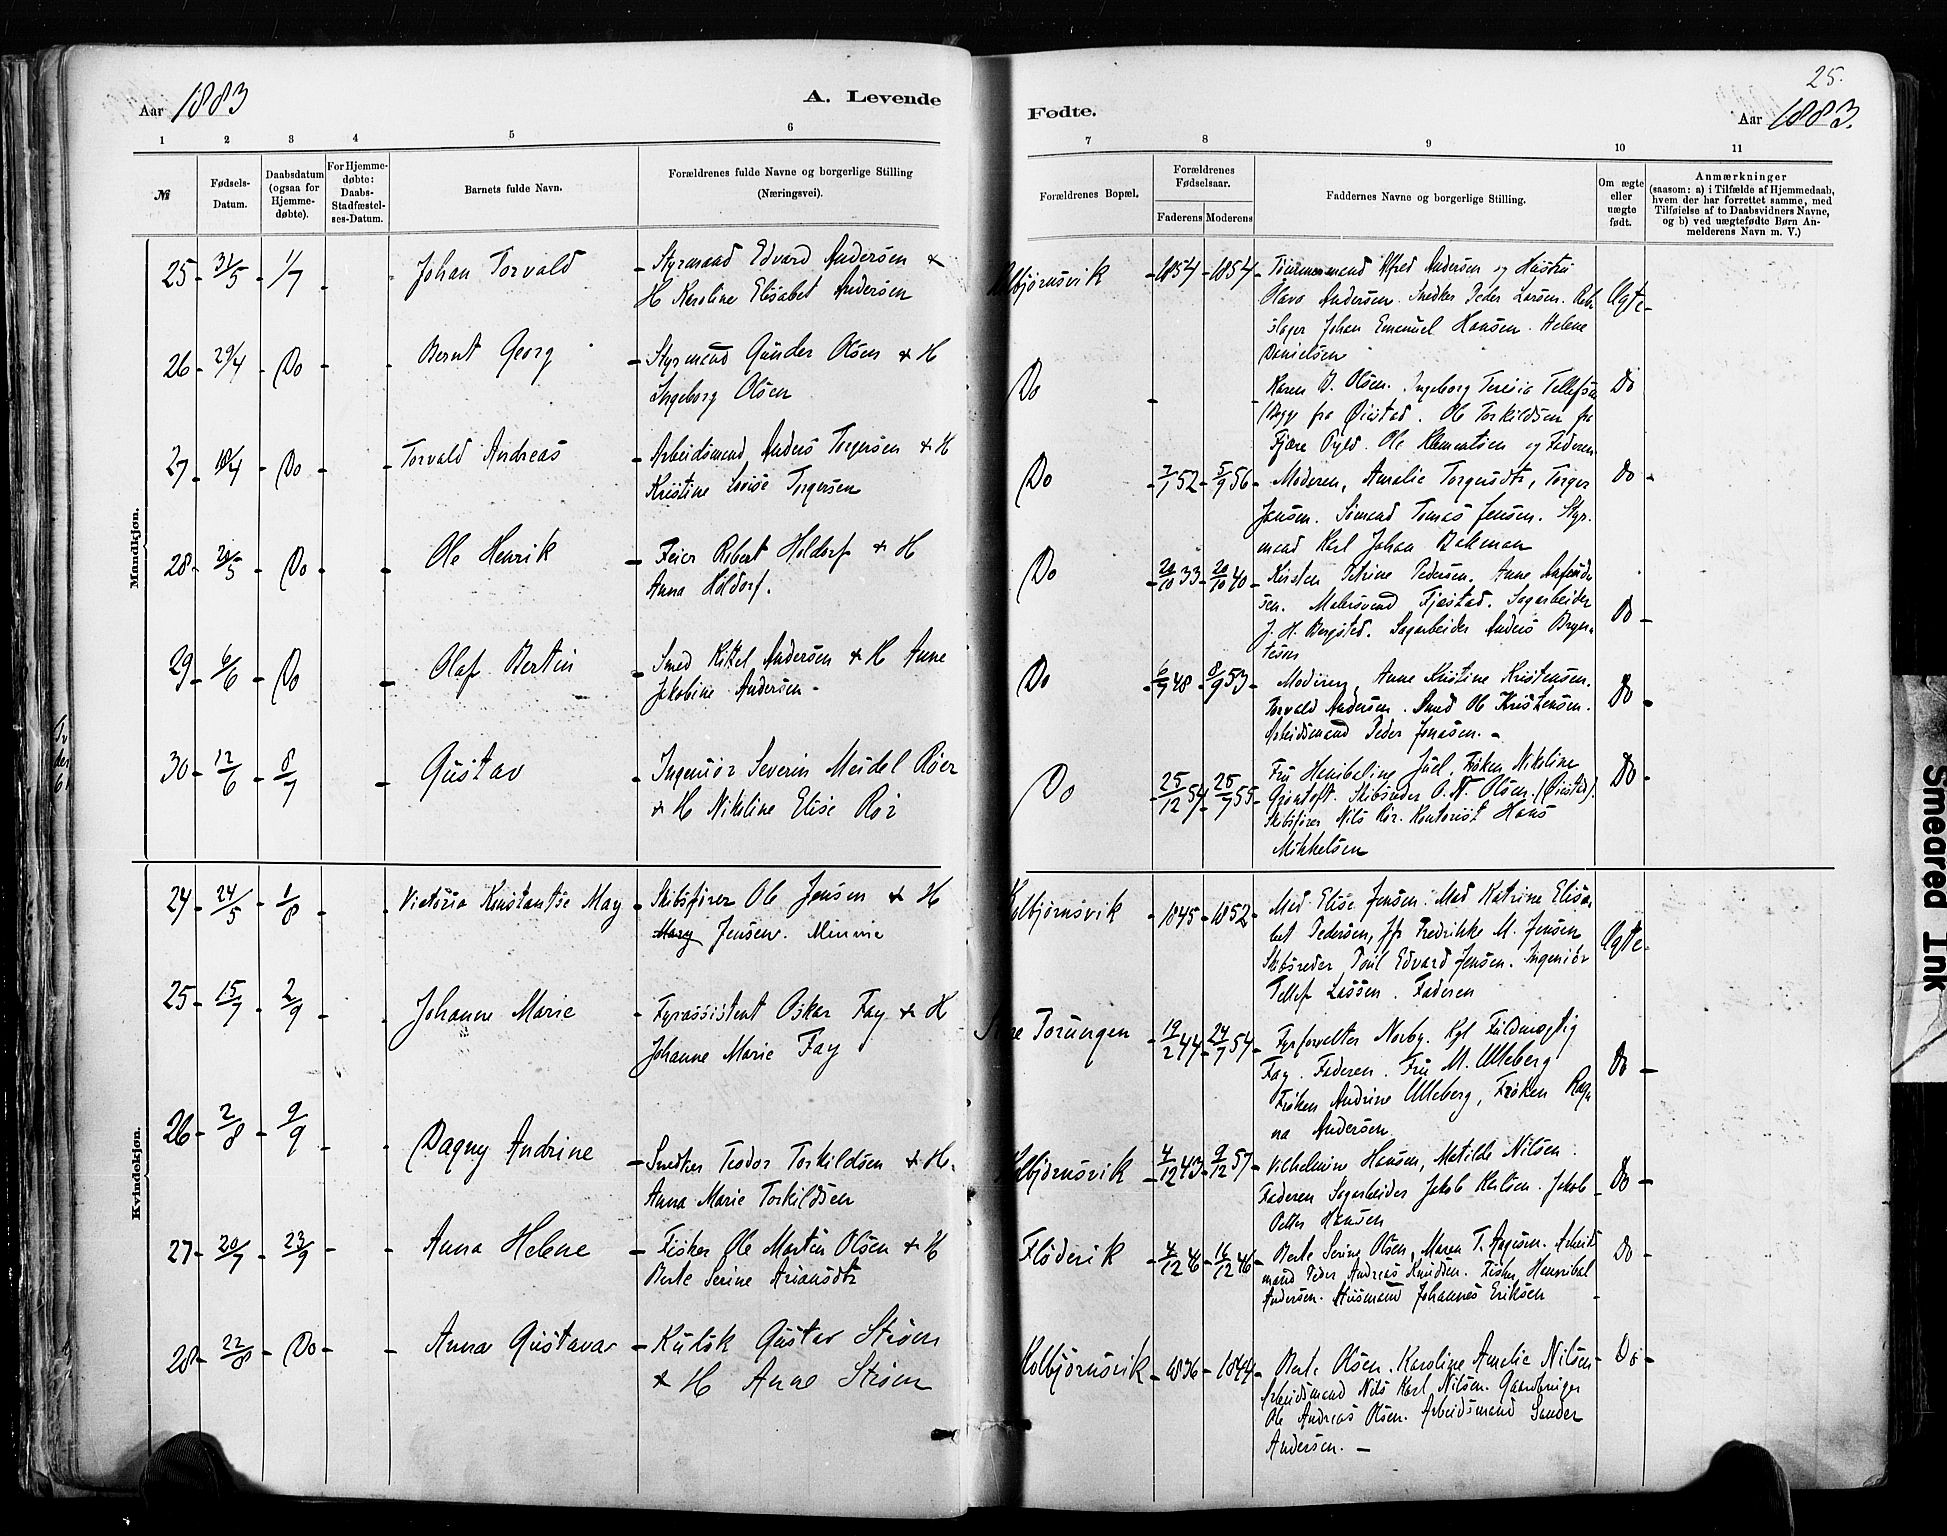 25.
Aar 1883
A. Levende
Fødte.
Aar 1883.
1 2 3 4 5 6 7 8 9 10 11
№
Fødsels-
Datum.
Daabsdatum
(ogsaa for
Hjemme-
døbte).
For Hjemme-
døbte:
Daabs-
Stadfæstel-
ses-Datum.
Barnets fulde Navn.
Forældrenes fulde Navne og borgerlige Stilling
(Næringsvei).
Forældrenes Bopæl.
Forældrenes
Fødselsaar.
Faderens Moderens
Faddernes Navne og borgerlige Stilling.
Om ægte
eller
uægte
født.
Anmærkninger
(saasom: a) i Tilfælde af Hjemmedaab,
hvem der har forrettet samme, med
Tilføielse af to Daabsvidners Navne,
og b) ved uægtefødte Børn An-
melderens Navn m. V.)
Mandkjøn.
25 - 31/5 - 1/7 - Johan Torvald - Styrmand Edvard Andersen +
H Karoline Elisabet Andersen
Kolbjørnsvik - 1854 - 1854 - Tømmermand Alfred Andersen og Hustru
Olava Andersen. Snedker Peder Larsen. Reb-
slager Johan Emanuel Hansen. Helene
Danielsen
Ægte -
26 - 29/4 - Do - Bernt Georg - Styrmand Gunder Olsen + H
Ingeborg Olsen
Do - Karen J. Olsen. Ingeborg Teresia Tellefsen
(Begge fra Øiestad. Ole Torkildsen fra
Fjære Ole Klementsen og Faderen
Do
27 - 18/4 - Do - Torvald Andreas - Arbeidsmand Anders Torgersen + H
Kristine Lovise Torgersen
Do - 7/7 52 - 5/9 56 - Moderen, Amalie Torgersdtr, Torger
Jensen. Sømand Tomas Jensen. Styr-
mand Karl Johan Bakman
Do -
28 - 5 - Do - Ole Henrik - Feier Robert Holdorf + H
Anna Holdorf.
Do - 20/10 33 - 20/10 40 - Kirsten Petrine Pedersen. Anne
sen. Malersvend Fjæstad. Sagarbeider
J. H. Bergsted. Sagarbeider Anders Bryn-
tesen
Do -
29 - 6/6 - Do - Olaf Bertin - Smed Kittel Andersen + H Anne
Jakobine Andersen -
Do - 6/7 48 - 8/9 53 - Moderen, Anne Kristine Kristensen.
Torvald Andersen. Smed Ole Kristensen.
Arbeidsmand Peder Jonasen. -
Do -
30 - 12/6 - 8/7 - Gustav - Ingeniør Severin Meidel Röer
+ H Nikoline Elise Rör
Do - 25/12 54 - 28/7 55 - Fru Hanibaline Juel. Frøken Nikoline
Grøntoft. Skibsreder O. N. Olsen. (Øiestad).
Skibsfører Nils Rör. Kontorist Hans
Mikkelsen
Do -
Kvindekjøn.
24 - 24/5 - 1/8 - Victoria Konstantse May - Skibsfører Ole Jensen + H
Mary Jensen. Minnie
Kolbjørnsvik - 1845 - 1852 - Mad. Elise Jensen. Mad Katrine Elisa-
bet Pedersen, Jfr Fredrikke M. Jensen
Skibsreder Poul Edvard Jensen. Ingeniør
Tellef Lassen. Faderen
Ægte -
25 - 15/7 - 2/9 - Johanne Marie - Fyrassistent Oskar Fay + H
Johanne Marie Fay
Store Torungen - 19/2 44 - 24/7 54 - Fyrforvalter Norby. Kgl Fuldmægtig
Fay. Faderen. Fru M. Ulleberg
Frøken Andrine Ulleberg, Frøken Rag-
na Andersen
Do -
26 - 2/8 - 9/9 - Dagny Andrine - Snedker Teodor Torkildsen + H.
Anna Marie Torkildsen
Kolbjørnsvik - 4/12 43 - 9/12 57 - Vilhelmine Hansen, Matilde Nilsen.
Faderen Sagarbeider Jakob Karlsen. Jakob
Petter Hansen
Do -
27 - 20/7 - 23/9 - Anna Helene - Fisker Ole Martin Olsen + H
Berte Serine Ariansdtr
Fløderik - 4/12 46 - 16/12 46 - Berte Serine Olsen, Maren T. Aagesen. Arbeids
mand Peder Andreas Knudsen. Fisker Hannibal
Andersen. Husmand Johannes Eriksen
Do -
28 - 22/8 - Do - Anna Gustava - Kudsk Gustav Strøm
+ H Anne Strøm
Kolbjørnsvik - 1836 - 1844 - Berte Olsen. Karoline Amalie Nilsen
Arbeidsmand Nils Karl Nilsen. Gaardbruger
Ole Andreas Olsen. Arbeidsmand Sander
Andersen. -
Do -
Smeared Ink